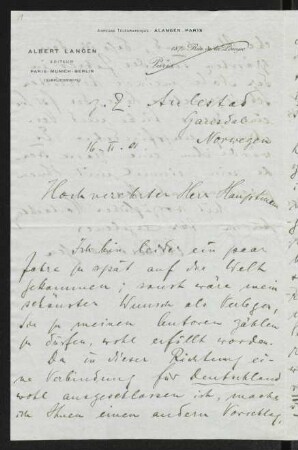 ADRESSE TÉLÉGRAPHIQUE: ALANGEN, PARIS
ALBERT LANGEN
EDITEUR
PARIS-MUNICH-BERLIN
Paris
z. Z. Aulestad
Norwegen
16. II. 01
Hochverehrter Herr Hauptmann
Ich bin leider ein paar
Jahre zu spät auf die Welt
gekommen; sonst wäre mein
schönster Wunsch als Verleger,
Sie zu meinen Autoren zählen
zu dürfen, wohl erfüllt worden.
Da in dieser Richtung ei-
ne Verbindung für Deutschland
wohl ausgeschlossen ist, mache
ich Ihnen einen andern Vorschlag.